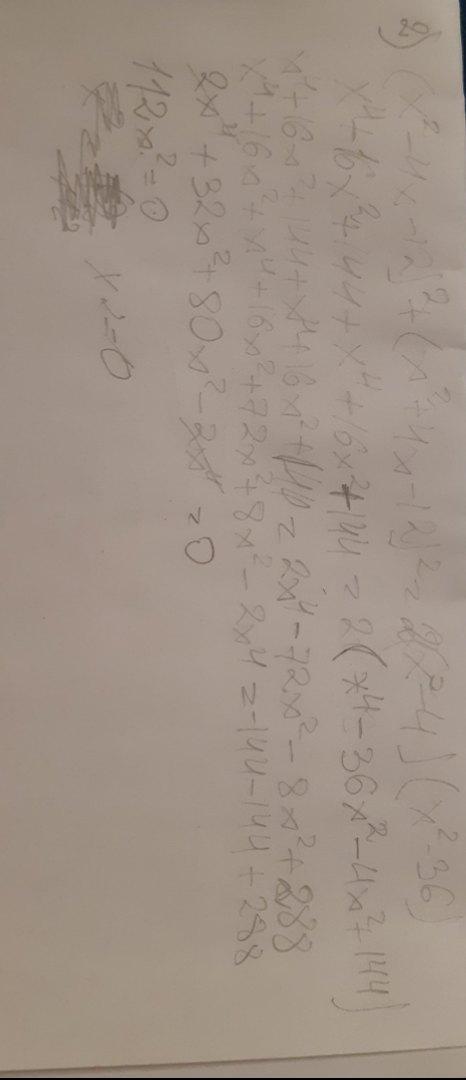 2) (x² - 4x - 12)² + (x² + 4x - 12)² = 2(x² - 4)(x² - 36)
x⁴ + 16x² + 144 + x⁴ + 16x² + 144 = 2(x⁴ - 36x² - 4x² + 144)
x⁴ + 16x² + 144 + x⁴ + 16x² + 144 = 2x⁴ - 72x² - 8x² + 288
x⁴ + 16x² + x⁴ + 16x² + 72x² + 8x² - 2x⁴ = -144 - 144 + 288
2x⁴ + 32x² + 80x² - 2x⁴ = 0
112x² = 0
x = 0